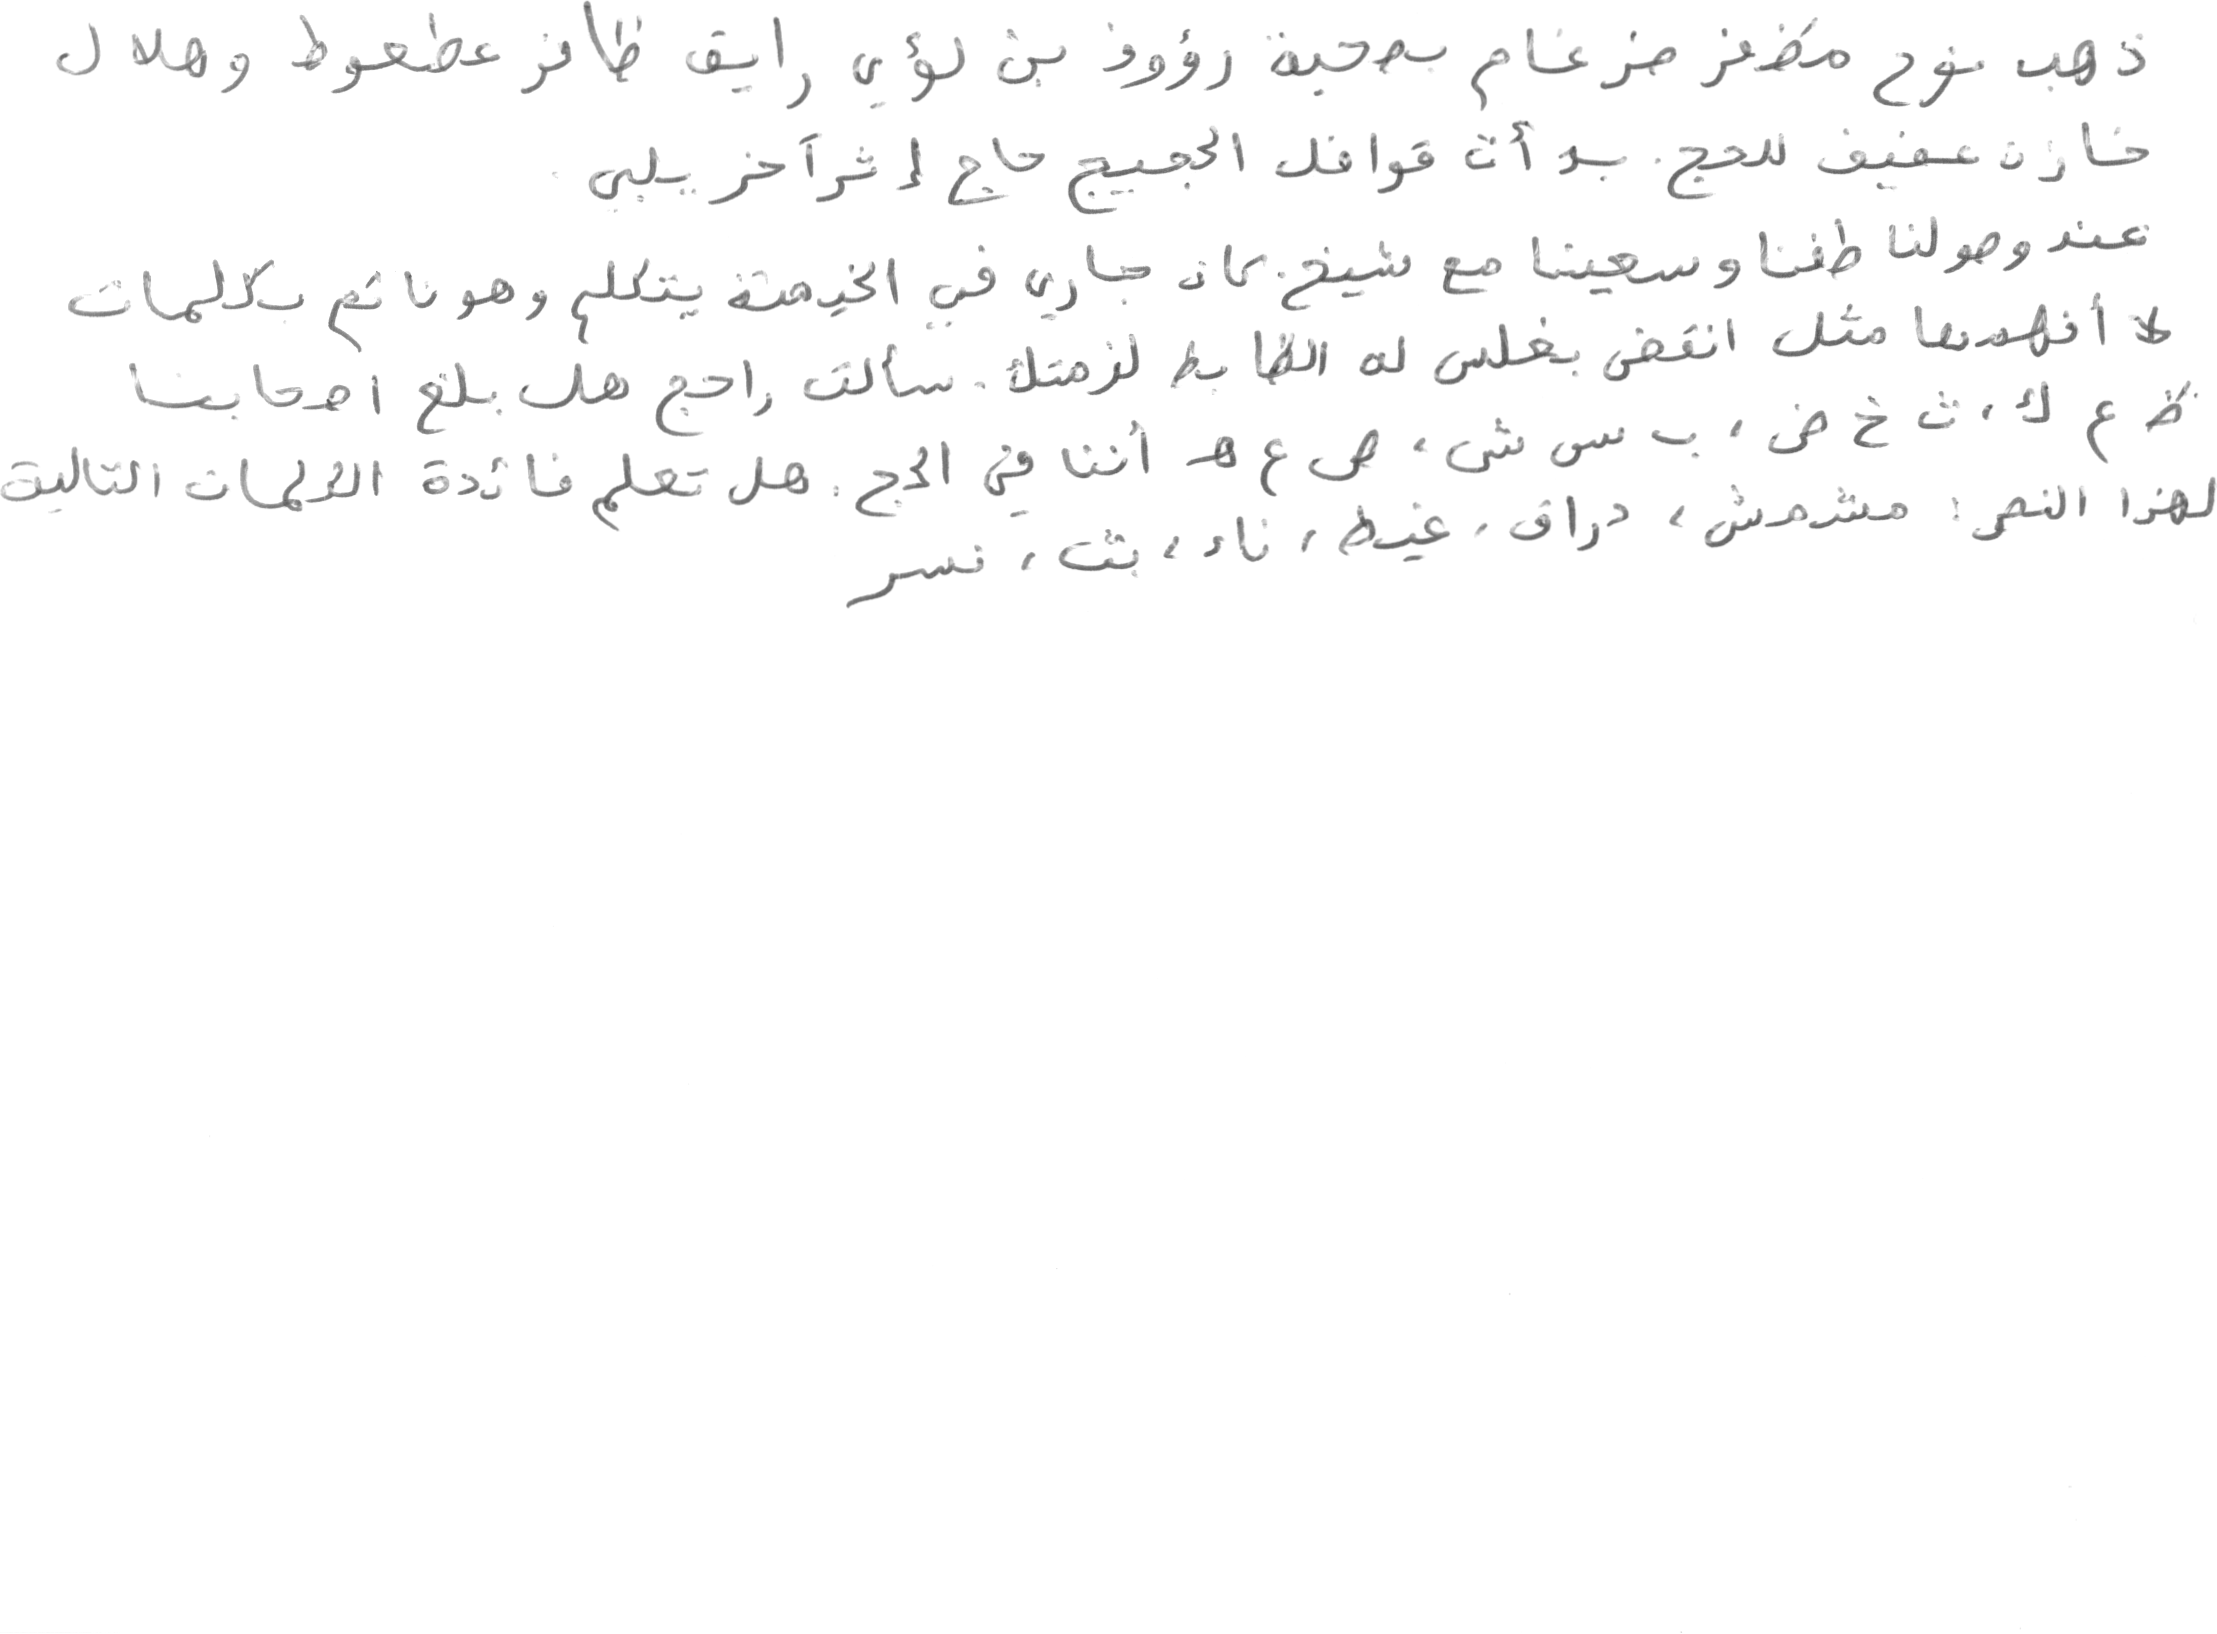 ذهب نوح مظفر ضرغام بصحبة رؤوف بن لؤي رايق ظافر عطعوط وهلال
خازن عفيف للحج. بدأت قوافل الحجيج حاج إثر آخر يلبي.
عند وصولنا طفنا وسعينا مع شيخ. كان جاري في الخيمة يتكلم وهو نائم بكلمات
لا أفهمها مثل انقض بغلس له الظابط لزمتك. سألت راجح هل بلغ أصحابنا
ظ ع ك، ث خ ض، ب س ش، ص ع هـ أننا في الحج. هل تعلم فائدة الكلمات التالية
لهذا النص: مشمش، دراق، غيظ، ناء، بثت، نسر